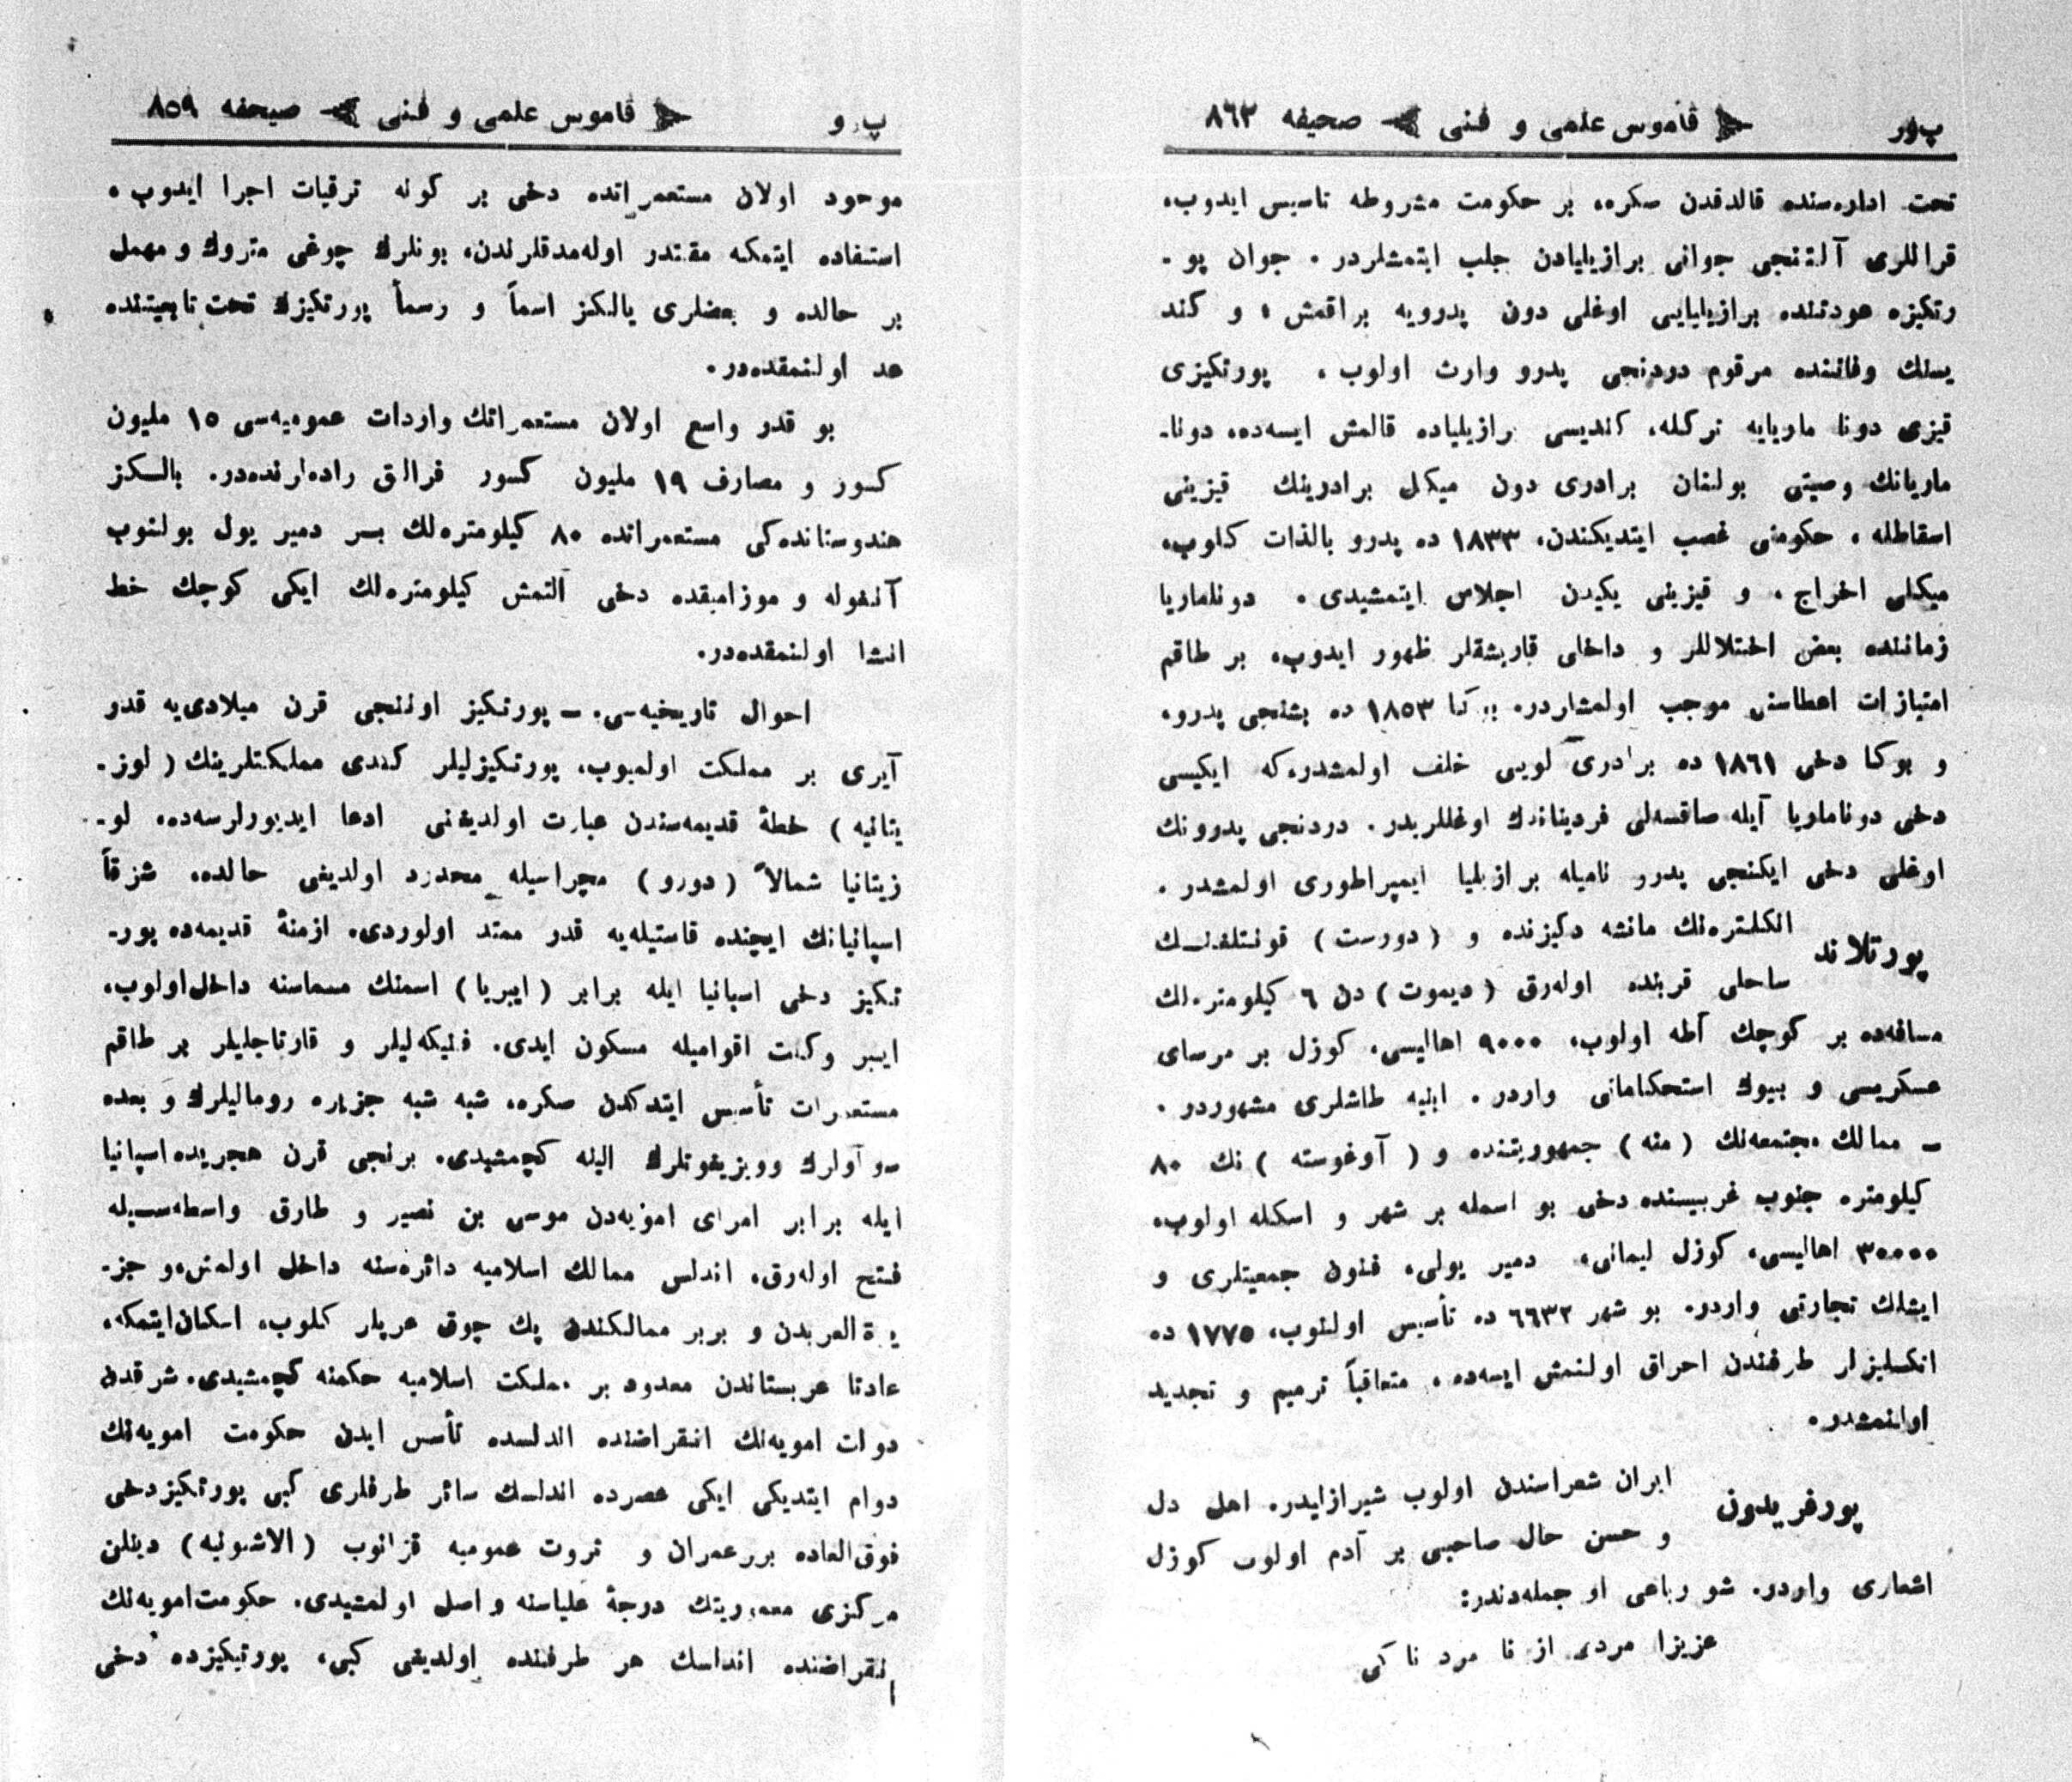 پ‌ور قاموس علمی و فنی صحیفه ٨٦٣
تحت اداره‌سنده قالدقدن صكره، بر حكومت مشروطه تاسیس ایدوب،
قراللری آلتنجی جوانی برازیلیادن جلب ایتمشلردر. جوان پو-
رتكیزه عودتنده برازیلیایی اوغلی دون پدرویه براقمش، و كند
یسنك وفاتنده مرقوم دردنجی پدرو وارث اولوب، پورتكیزی
قیزی دونا ماریایه ترکله، كندیسی برازیلیاده قالمش ایسه‌ده، دونا-
ماریانك وصیتی بولنان برادری دون میكل برادرینك قیزینی
اسقاطله، حكومتی غصب ایتدیكندن، ١٨٣٣ ده پدرو بالذات كلوب،
میكلی اخراج، و قیزینی یكیدن اجلاس ایتمشیدی. دوناماریا
زماننده بعض اختلاللر و داخلی قاریشقلر ظهور ایدوب، بر طاقم
امتیازات اعطاسنی موجب اولمشلردر. بوكا ١٨٥٣ ده بشنجی پدرو،
و بوكا دخی ١٨٦١ ده برادری لویی خلف اولمشدر،كه ایكیسی
دخی دوناماریا آیله صاقسه‌لی فردیناندك اوغللریدر. دردنجی پدرونك
اوغلی دخی ایكنجی پدرو نامیله برازیلیا ایمپراطوری اولمشدر.
پورتلاند انكلتره‌نك مانشه دكیزنده و (دورست) قونتلغنك
ساحلی قربنده اوله‌رق (دیموت) دن ٦ كیلومتره‌لك
مسافه‌ده بر كوچك آطه اولوب، ٩٠٠٠ اهالیسی، كوزل بر مرسای
عسكریسی و بیوك استحكاماتی واردر. ابنیه طاشلری مشهوردر.
- ممالك مجتمعه‌نك (منه) جمهوریتنده و (آوغوسته) نك ٨٠
كیلومتره جنوب غربیسنده دخی بو اسمله بر شهر و اسكله اولوب،
٣٠٠٠٠ اهالیسی، كوزل لیمانی، دمیر یولی، فنون جمعیتلری و
ایشلك تجارتی واردر. بو شهر ٦٦٣٢ ده تأسیس اولنوب، ١٧٧٥ ده
انكلیزلر طرفندن احراق اولنمش ایسه‌ده، متعاقباً ترمیم و تجدید
اولنمشدر.
پورفریدون ایران شعراسندن اولوب شیرازلیدر. اهل دل
و حسن حال صاحبی بر آدم اولوب كوزل
اشعاری واردر. شو رباعی او جمله‌دندر:
عزیزا مردی از نا مرد ناكی
پ.رو قاموس علمی و فنی صیحفه ٨٥٩
موجود اولان مستعمراتده دخی بر كونه ترقیات اجرا ایدوب،
استفاده ایتمكه مقتدر اوله‌مدقلرندن، بونلرك چوغی متروك و مهمل
بر حالده و بعضلری یالكز اسماً و رسماً پورتكیزك تحت تابعیتنده
عد اولنمقده‌در.
بو قدر واسع اولان مستعمراتك واردات عمومیه‌سی ١٥ ملیون
كسور و مصارف ١٩ ملیون كسور فرالق راده‌لرنده‌در. یالكز
هندوستانده‌كی مستعمراتده ٨٠ كیلومتره‌لك بر دمیر یول بولنوب
آنغوله و موزامبقده دخی آلتمش كیلومتره‌لك ایكی كوچك خط
انشا اولنمقده‌در.
احوال تاریخیه‌سی. - پورتكیز اوننجی قرن میلادی‌یه قدر
آیری بر مملكت اولمیوب، پورتكیزلیلر كندی مملكتلرینك (لوز-
یتانیه) خطهٔ قدیمه‌سندن عبارت اولدیغنی ادعا ایدیورلرسه‌ده، لو-
زیتانیا شمالاً (دورو) مجراسیله محدود اولدیغی حالده، شرقاً
اسپانیانك ایچنده قاستیله‌یه قدر ممتد اولوردی. ازمنهٔ قدیمه‌ده پور-
تكیز دخی اسپانیا ایله برابر (ایبریا) اسمنك مسماسنه داخل اولوب،
ایبر وكلت اقوامیله مسكون ایدی. فنیكه‌لیلر و قارتاجلیلر بر طاقم
مستعمرات تأسیس ایتدكدن صكره، شبه شبه جزیره رومالیلرك و بعده
سوآولرك وویزیغوتلرك الینه كچمشیدی. برنجی قرن هجریده اسپانیا
ایله برابر امرای امویه‌دن موسی بن نصیر و طارق واسطه‌سیله
فتح اوله‌رق، اندلس ممالك اسلامیه دائره‌سنه داخل اولمش،و جز-
یرة العربدن و بربر ممالكندن پك چوق عربلر كلوب، اسكان‌ایتمكه،
عادتا عربستاندن معدود بر مملكت اسلامیه حكمنه كچمشیدی. شرقدن
دولت امویه‌نك انقراضنده اندلسده تأسس ایدن حكومت امویه‌نك
دوام ایتدیكی ایكی عصرده اندلسك سائر طرفلری كبی پورتكیزدخی
فوق‌العاده بررعمران و ثروت عمومیه قزانوب (الاشبونیه) دینلن
مركزی معموریتك درجهٔ علیاسنه واصل اولمشیدی. حكومت‌امویه‌نك
انقراضنده اندلسك هر طرفنده اولدیغی كبی، پورتیكیزده دخی